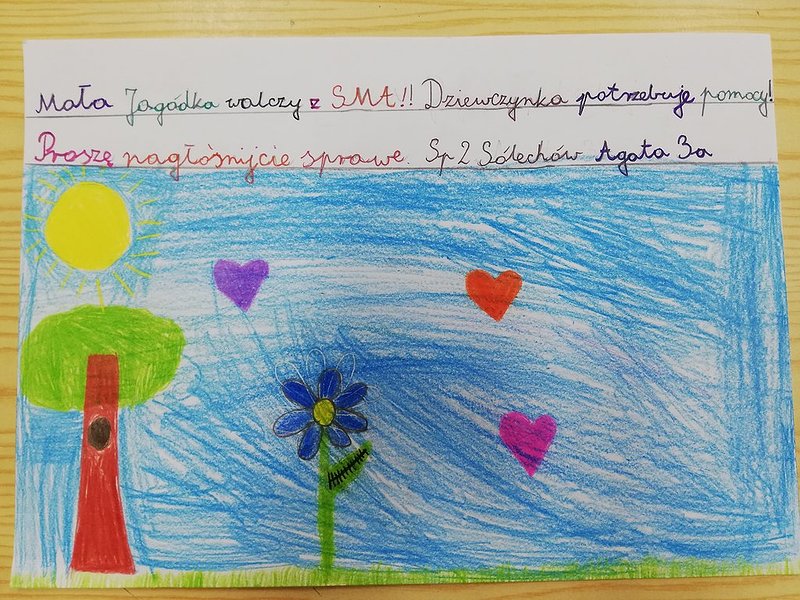 Mała Jagódka walczy z SMA!! Dziewczynka potrzebuje pomocy!
Proszę nagłośnijcie sprawę. Sp 2 Sólechów Agata 3a